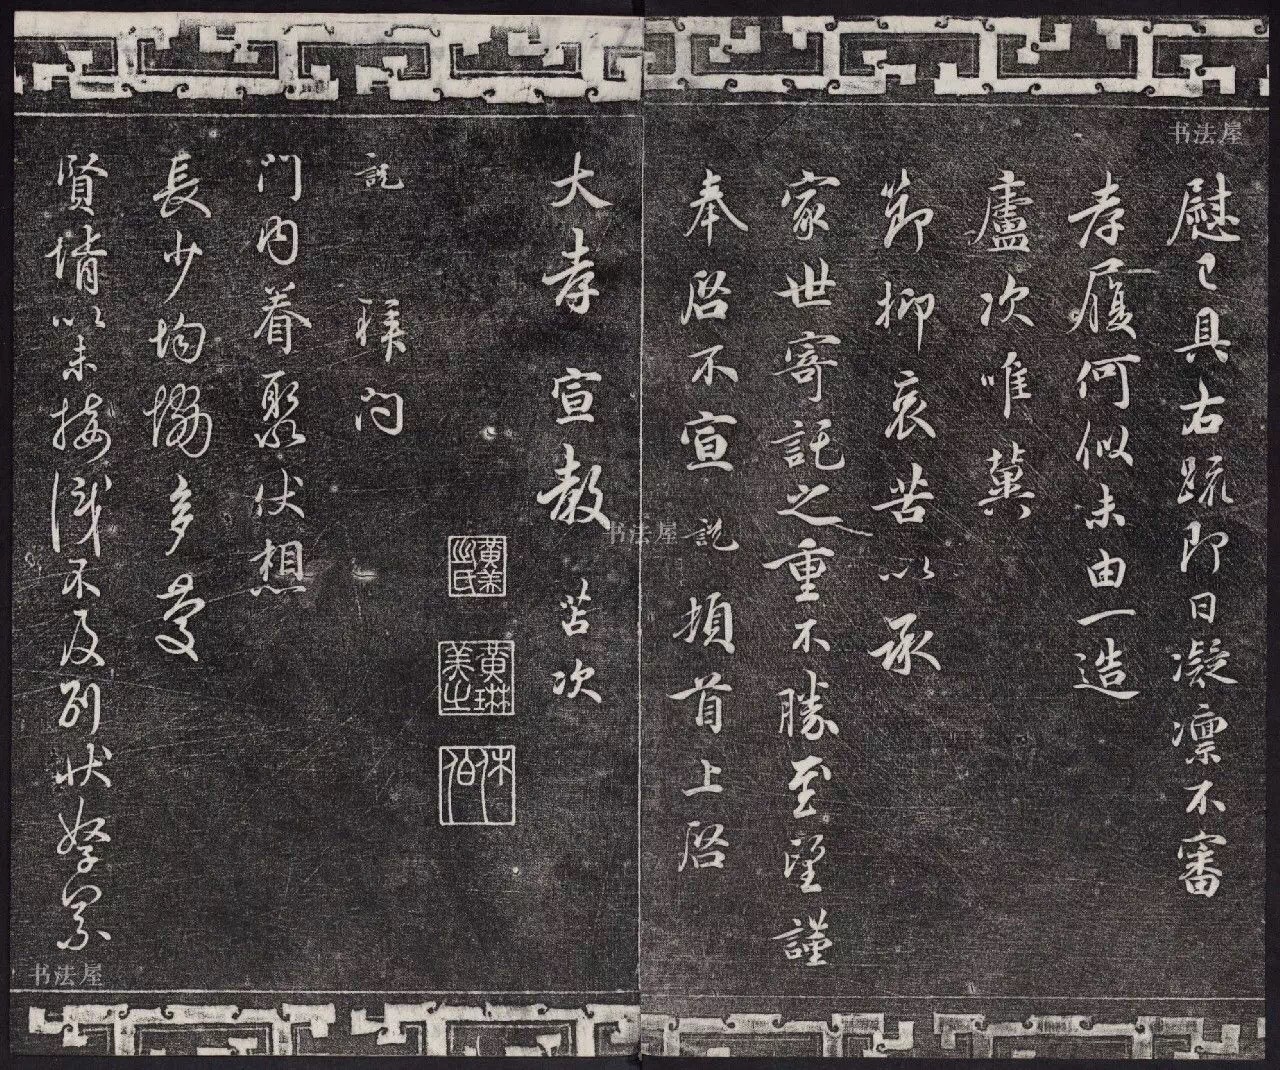 慰已具右疏即日凝凛不審
孝履何似未由一造
廬次唯冀
節抑哀苦以承
家世寄託之重不勝至望謹
奉啓不宣 説頓首上啓
大孝宣教 苫次
説 拜問
門内眷聚伏想
長少均協多慶
賢壻以未接識不及列狀孥累
黄美之氏
黄琳美之
休伯
书法屋
书法屋
书法屋